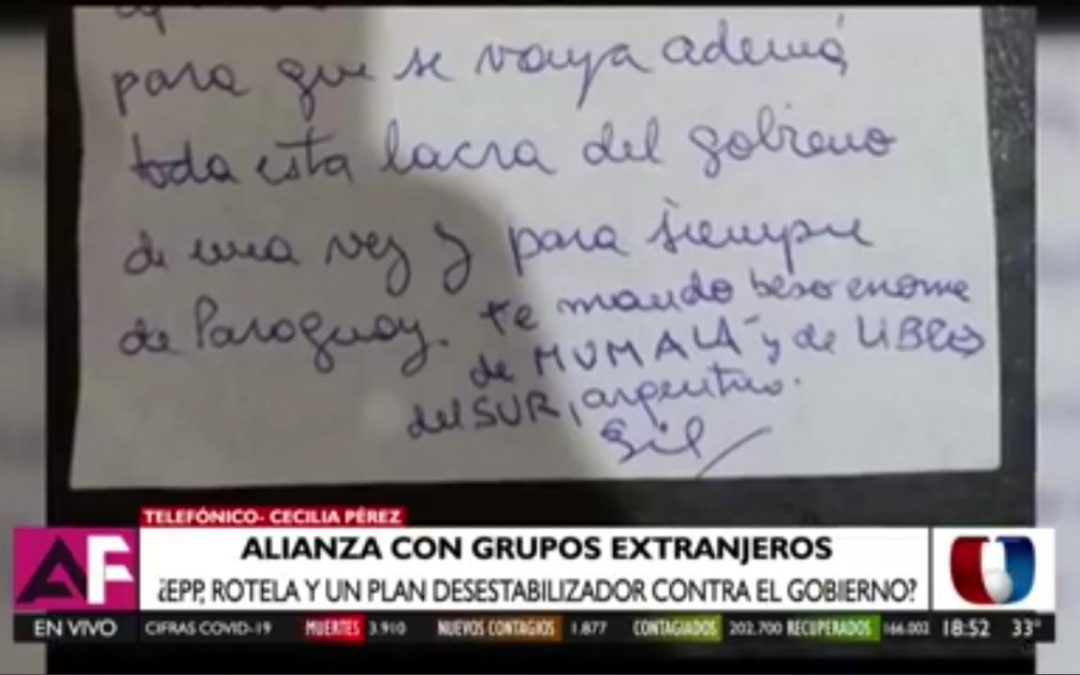 para que se vaya además
toda esta lacra del gobierno
de una vez y para siempre
de Paraguay. te mando beso enorme
de MUMALÁ y de LIBRES
del SUR, argentina.
Gil
TELEFÓNICO- CECILIA PÉREZ
AF
ALIANZA CON GRUPOS EXTRANJEROS
¿EPP, ROTELA Y UN PLAN DESESTABILIZADOR CONTRA EL GOBIERNO?
EN VIVO CIFRAS COVID-19 MUERTES 3.910 NUEVOS CONTAGIOS 1.877 CONTAGIADOS 202.700 RECUPERADOS 166.002 18:52 33°